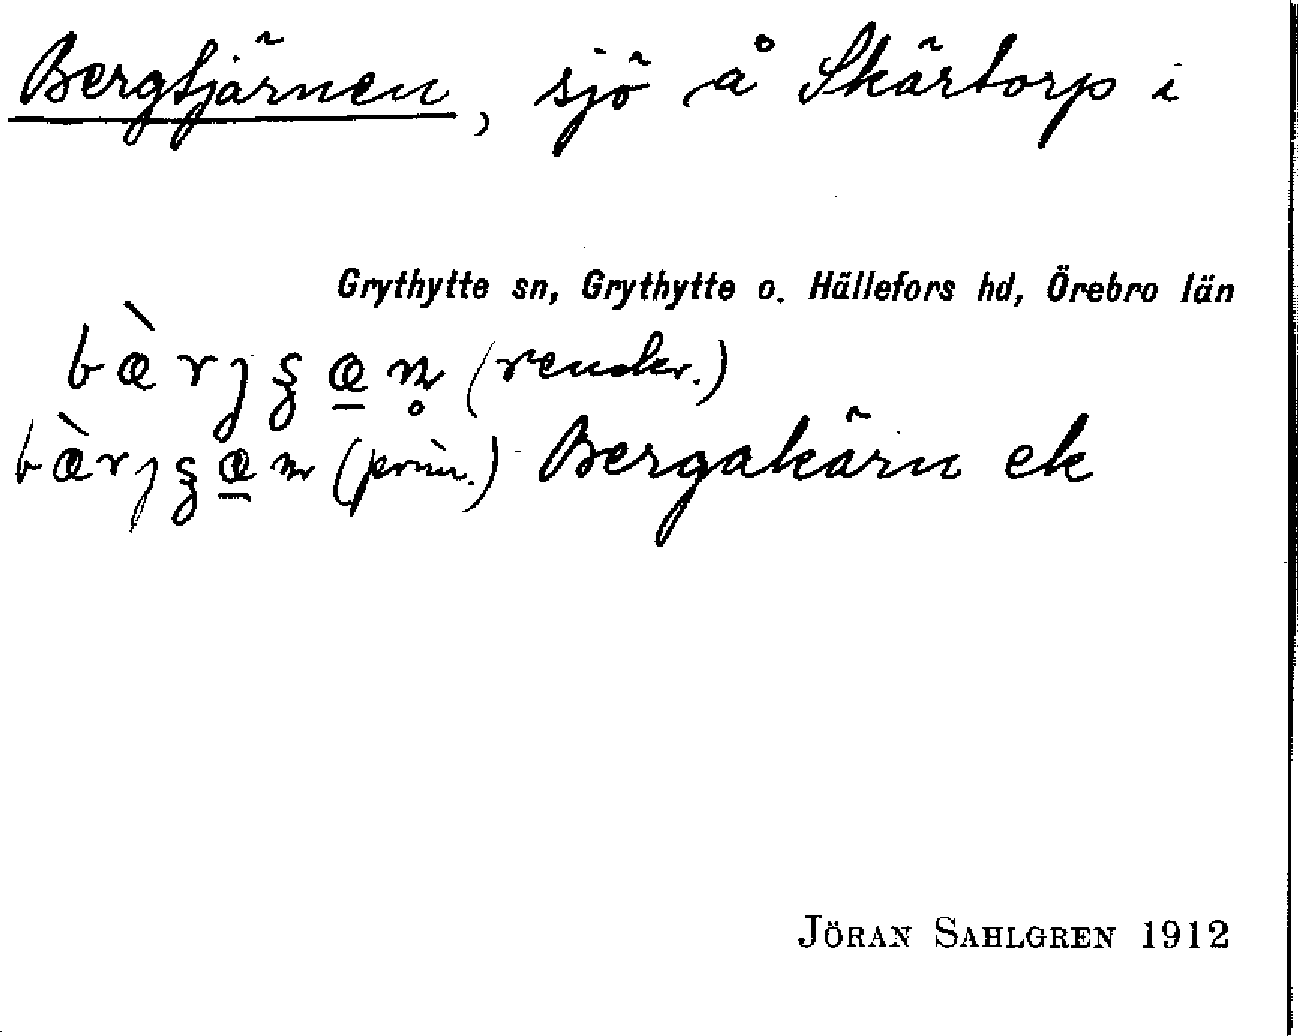 Bergtjärnen, sjö å Skärtorp i
Grythytte sn, Grythytte o. Hällefors hd, Örebro län
bæ̀rjʂæ̠n̥
bæ̀rjʂæ̠n (prim.) Bergakärn ek
JÖRAN SAHLGREN 1912